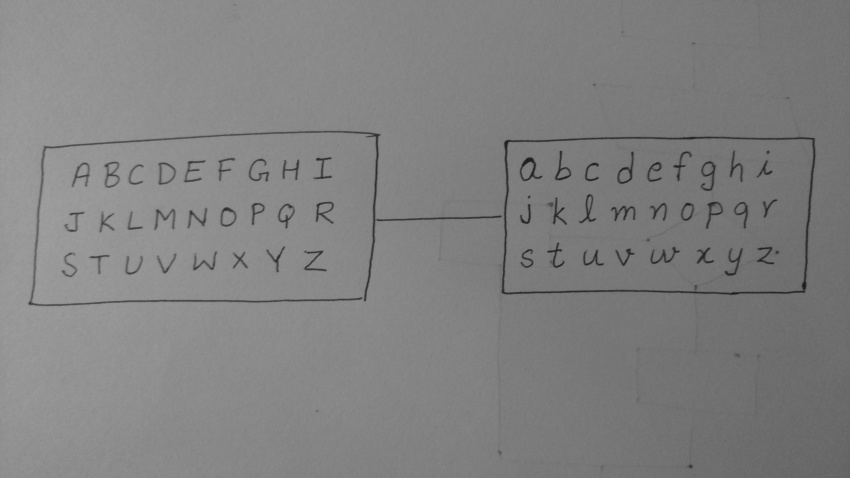 A B C D E F G H I
J K L M N O P Q R
S T U V W X Y Z
a b c d e f g h i
j k l m n o p q r
s t u v w x y z.